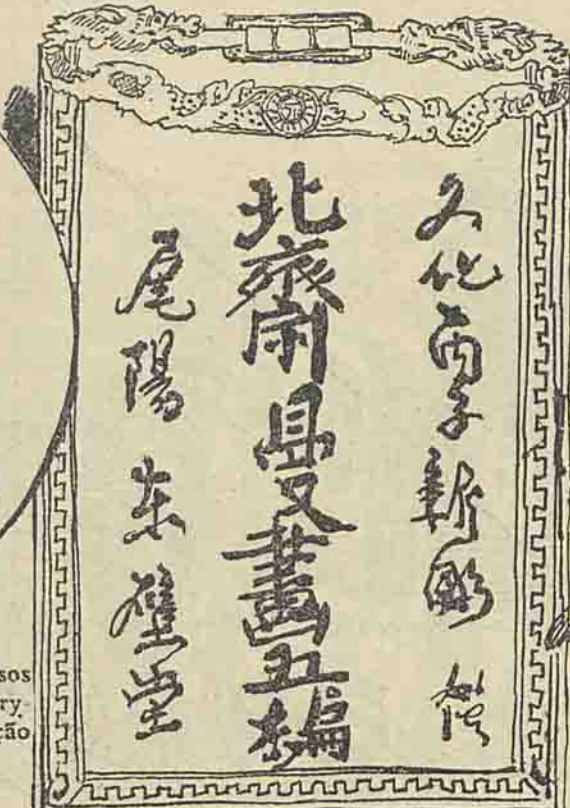 文化丙子新彫
北齋曼畫五編
尾陽東壁堂
sos
ry-
ção